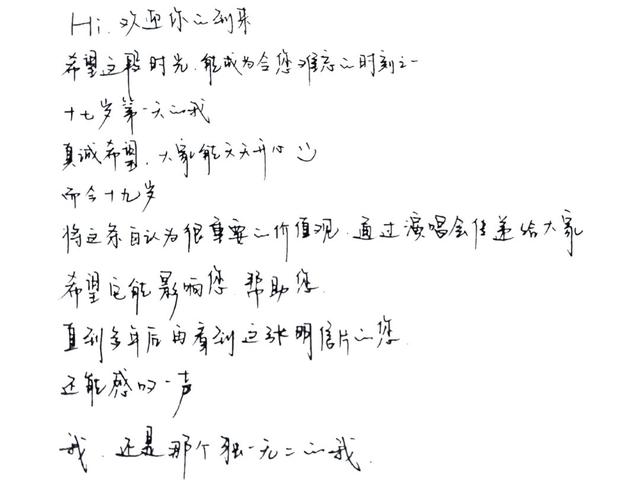 Hi. 欢迎你的到来
希望这段时光,能成为令您难忘的时刻之一
十七岁第一天的我
真诚希望,大家能天天开心
而今十九岁
将这条自认为很重要的价值观,通过演唱会传递给大家
希望它能影响您 帮助您
直到多年后再看到这张明信片的您
还能感叹一声
我,还是那个独一无二的我.